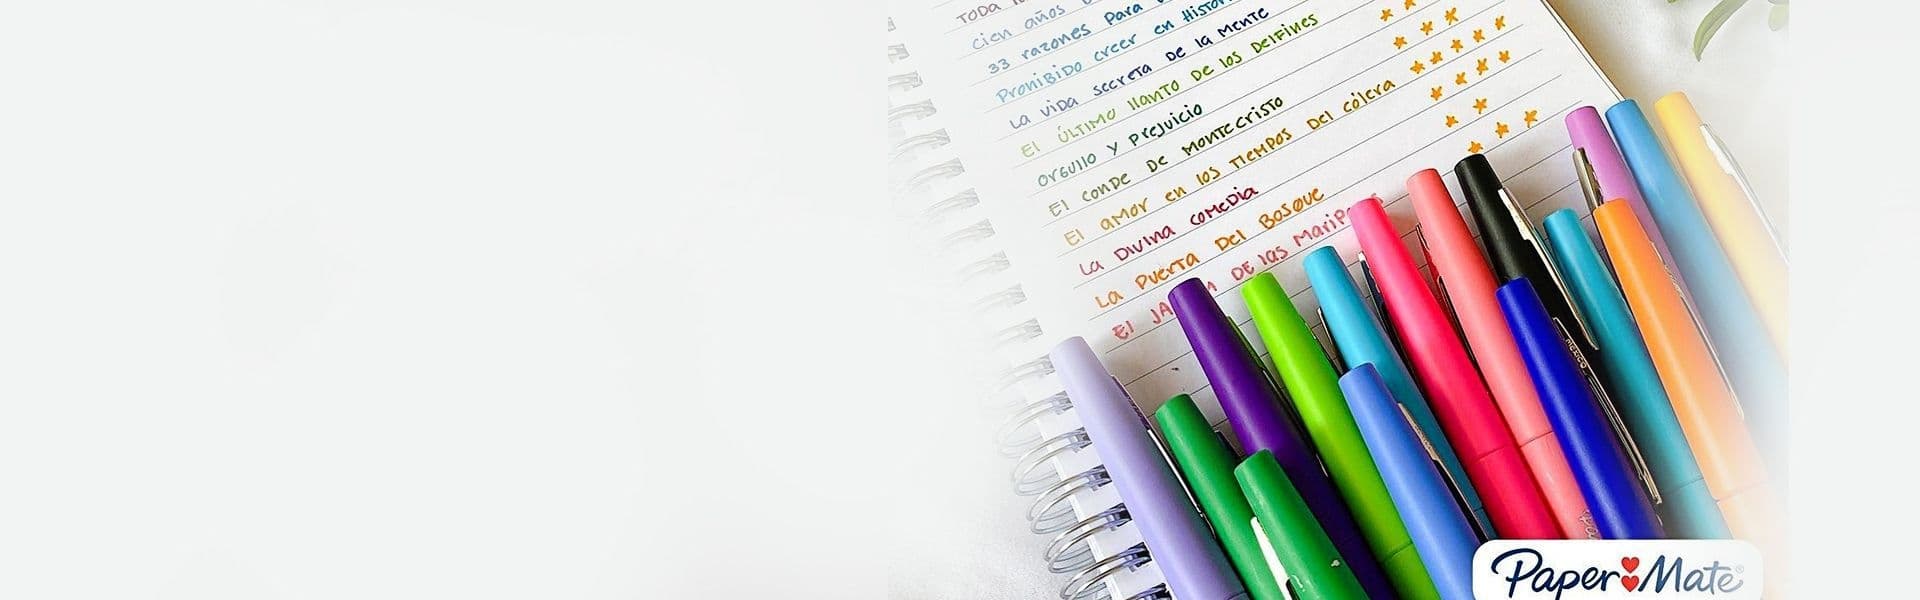 Toda
cien años
33 razones para
Prohibido creer en Histor
La vida secreta de la mente
El último llanto de los delfines
Orgullo y prejuicio
El conde de montecristo
El amor en los tiempos del cólera
La divina comedia
La puerta del bosque
El de las
MEXICO
Paper Mate®